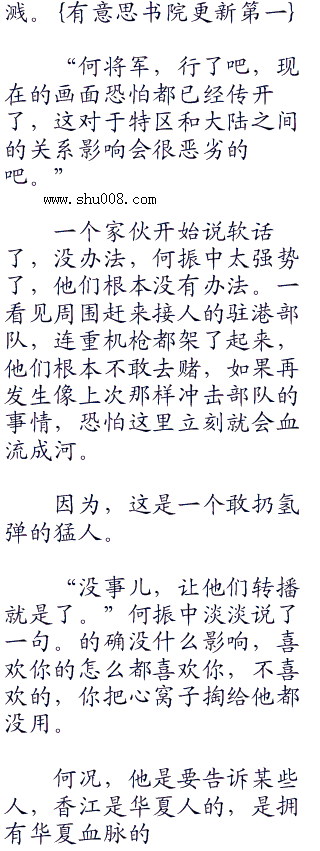 溅。{有意思书院更新第一}
“何将军，行了吧，现
在的画面恐怕都已经传开
了，这对于特区和大陆之间
的关系影响会很恶劣的
吧。”
www.shu008.com
一个家伙开始说软话
了，没办法，何振中太强势
了，他们根本没有办法。一
看见周围赶来接人的驻港部
队，连重机枪都架了起来，
他们根本不敢去赌，如果再
发生像上次那样冲击部队的
事情，恐怕这里立刻就会血
流成河。
因为，这是一个敢扔氢
弹的猛人。
“没事儿，让他们转播
就是了。”何振中淡淡说了
一句。的确没什么影响，喜
欢你的怎么都喜欢你，不喜
欢的，你把心窝子掏给他都
没用。
何况，他是要告诉某些
人，香江是华夏人的，是拥
有华夏血脉的